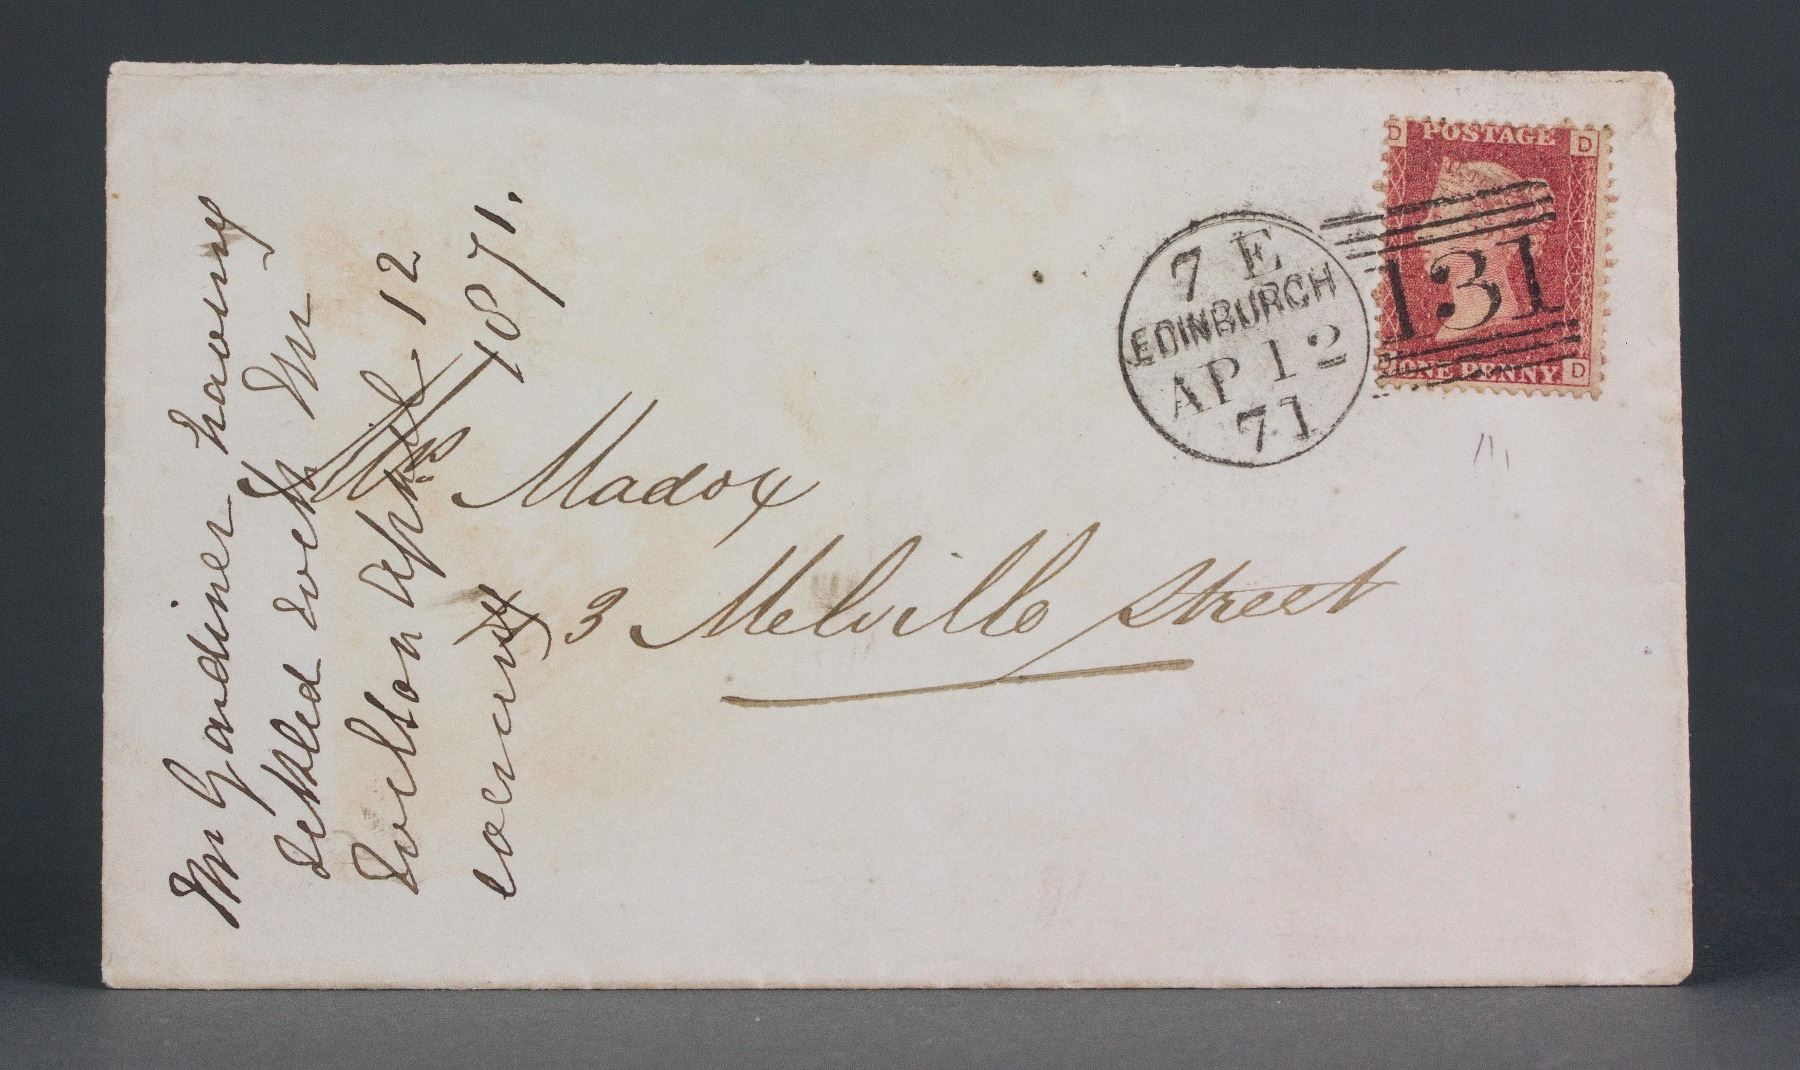 POSTAGE
D D
131
ONE PENNY
D
7 E
EDINBURGH
AP 12
71
Mrs Madox
3 Melville Street
Mr Gardiner having
settled with Mr
Wilson April 12
1871.